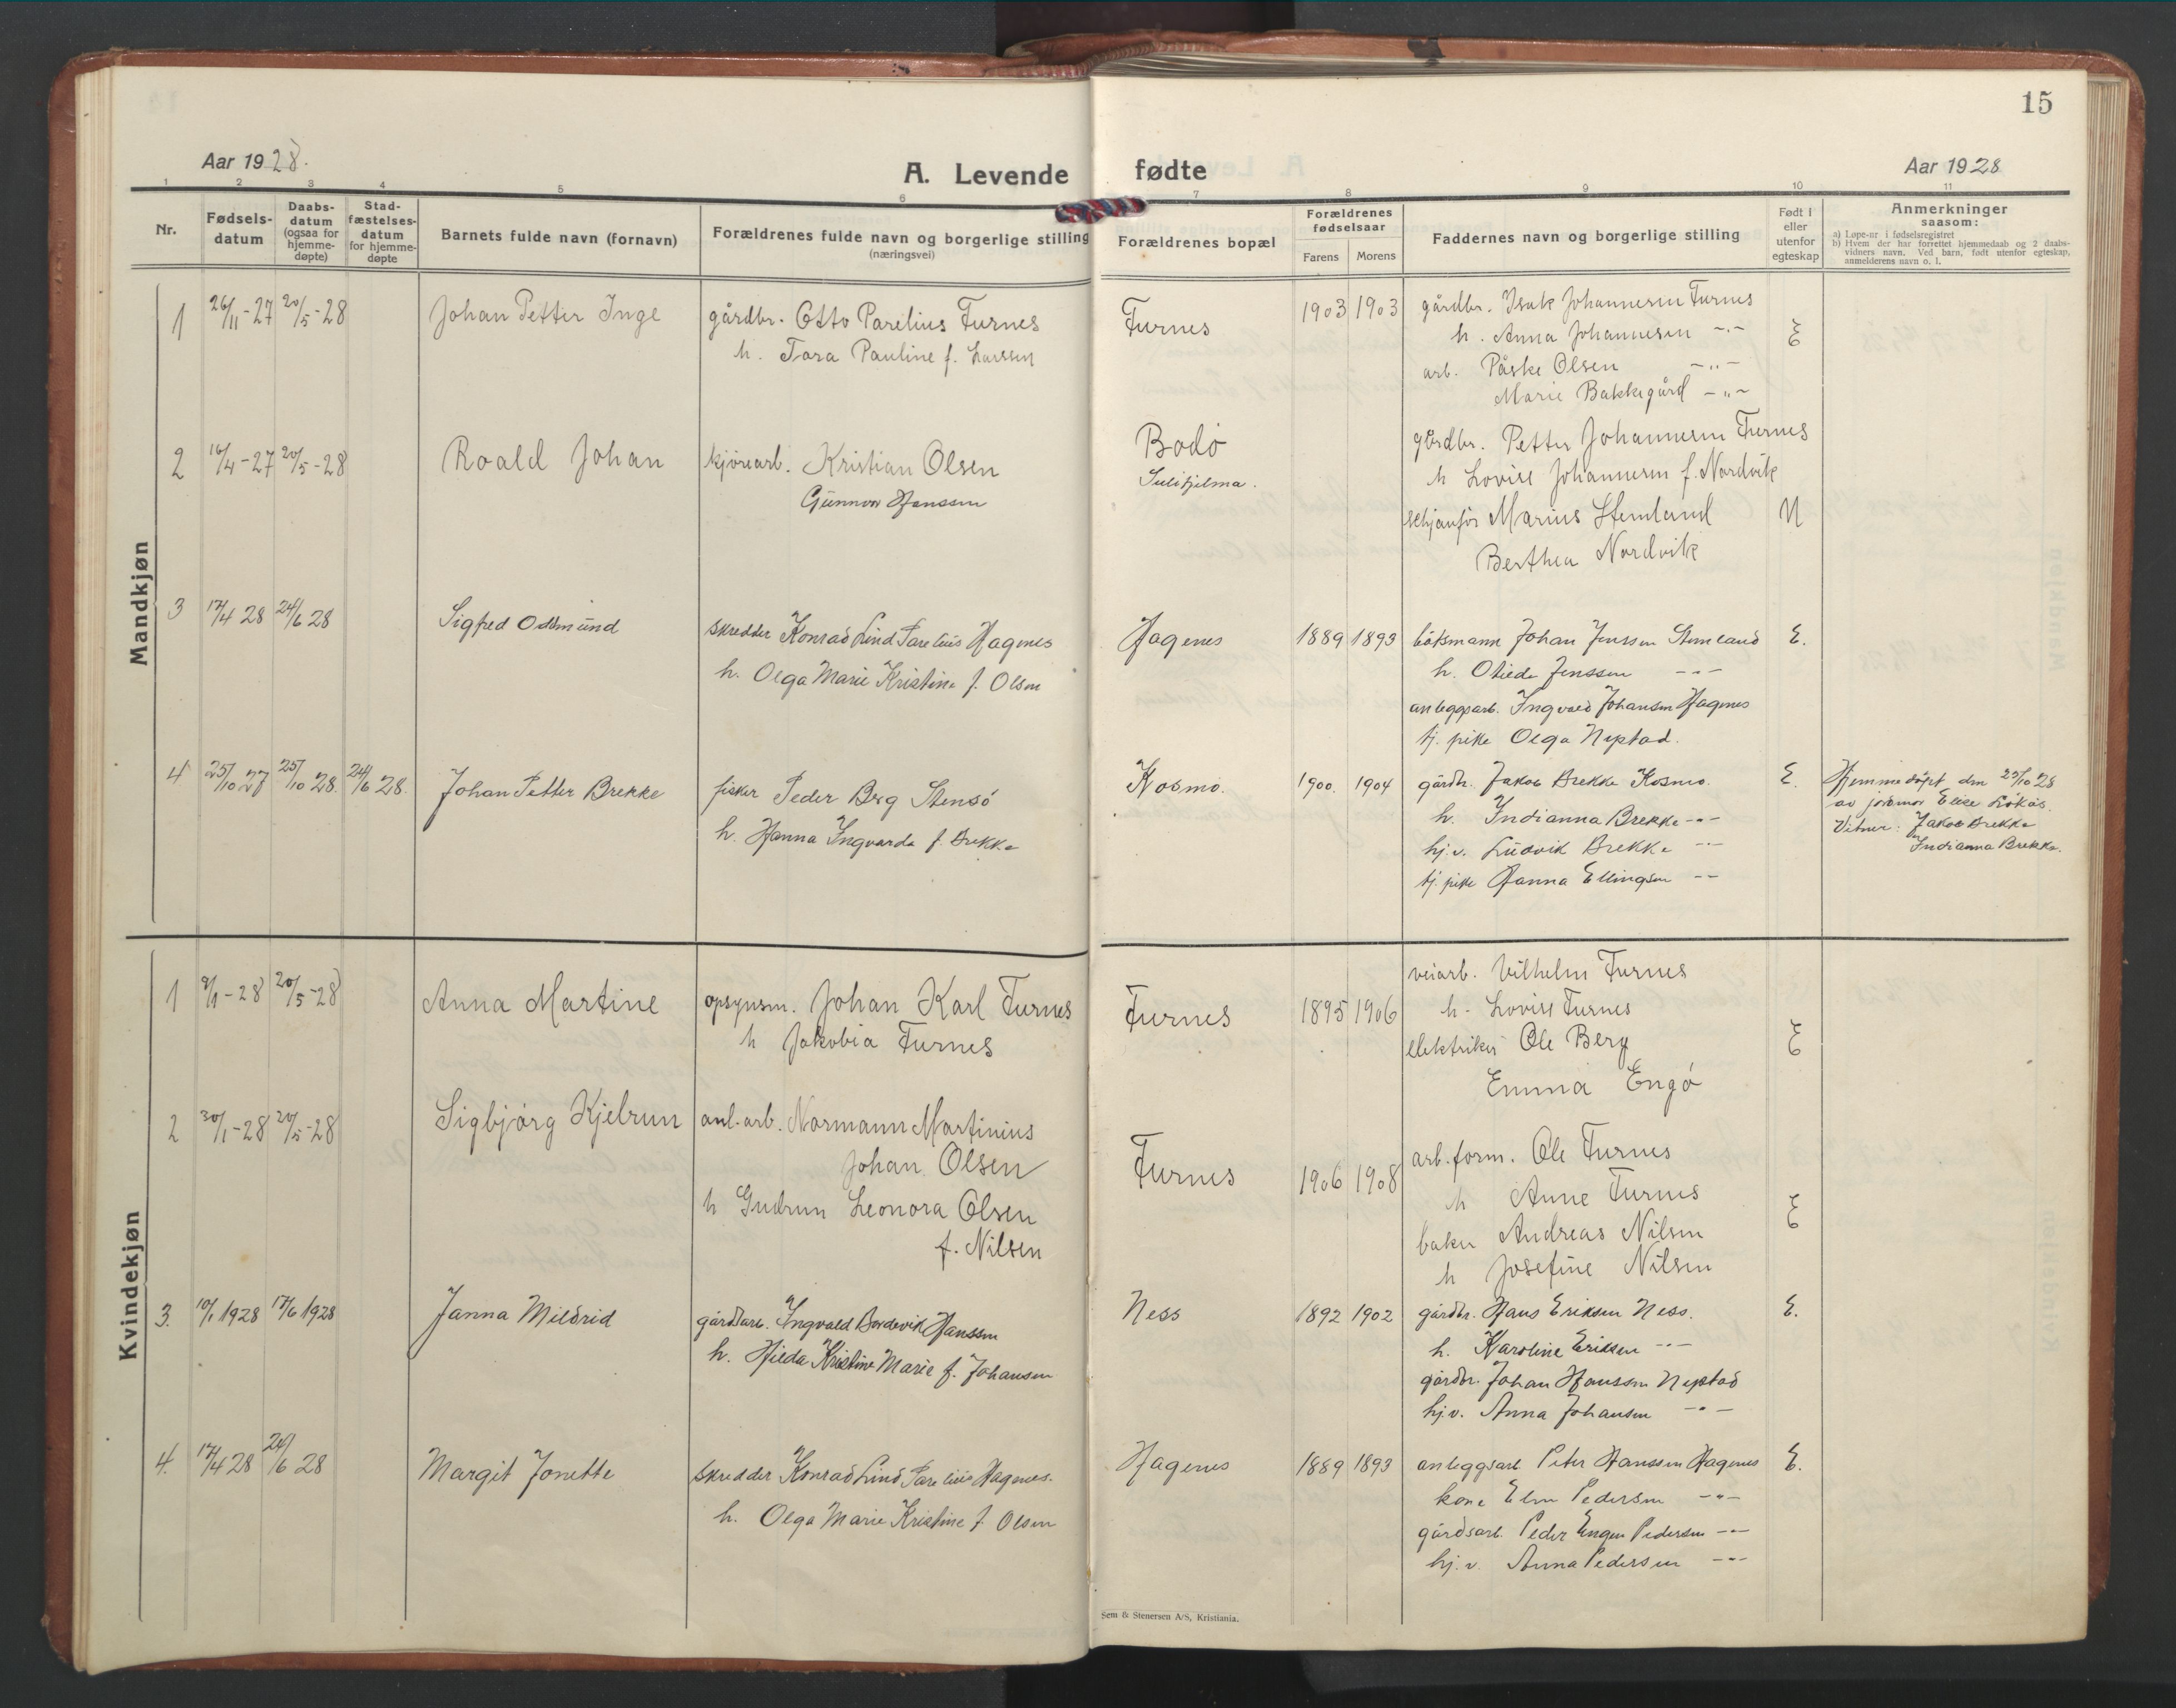 15
Aar 1928.
A. Levende fødte
Aar 1928
1 2 3 4 5 6 7 8 9 10 11
Nr.
Fødsels-
datum
Daabs-
datum
(ogsaa for
hjemme-
døpte)
Stad-
fæstelses-
datum
for hjemme-
døpte
Barnets fulde navn (fornavn)
Forældrenes fulde navn og borgerlige stilling
(næringsvei)
Forældrenes bopæl
Forældrenes
fødselsaar
Farens Morens
Faddernes navn og borgerlige stilling
Født i
eller
utenfor
egteskap
Anmerkninger
saasom:
a) Løpe-nr i fødselsregistret
b) Hvem der har forrettet hjemmedaab og 2 daabs-
vidners navn. Ved barn, født utenfor egteskap,
anmelderens navn o. l.
Mandkjøn
1 26/11-27 20/5-28 Johan Petter Inge gårdbr. Otto Parelius Furnes Furnes 1903 1903 gårdbr. Isak Johannesen Furnes E
h. Tora Pauline f. Larssen h. Anna Johannesen -"-
arb. Påske Olsen -"-
Marie Bakkegård -"-
2 16/4-27 20/5-28 Roald Johan kjørearb. Kristian Olsen Bodø gårdbr. Petter Johannesen Furnes
Gunnor Hanssen Sulitjelma. h Lovise Johannesen f. Nordvik
schjanför Marius Stemland N
Berthea Nordvik
3 17/4 28 24/6 28 Sigfred Oddmund skredder Konrad Lind Parelius Hagenes Hagenes 1889 1893 båtsmann Johan Jenssen Stemland E.
h. Olga Marie Kristine f. Olsen h. Otilde Jenssen -"-
anleggsarb. Ingvald Johansen Hagenes
tj. pike Olga Nystad.
4 25/10 27 25/10 28. 24/6 28. Johan Petter Brekke fisker Peder Berg Stensø Kosmo. 1900. 1904 gårdbr. Jakob Brekke Kosmo. E. Hjemmedøpt den 25/10 28
h. Hanna Ingvarda f. Brekke h. Indianna Brekke -"- av jordmor Elise Løkås.
hj.v. Ludvik Brekke -"- Vitner: Jakob Brekke
tj. pike Hanna Ellingsen -"- Indianna Brekke.
Kvindekjøn
1 9/1-28 20/5-28 Anna Martine opsynsm. Johan Karl Furnes Furnes 1895 1906 veiarb. Vilhelm Furnes E
h Jakobia Furnes h. Lovise Furnes
elektriker Ole Berg
Emma Engø
2 30/1-28 20/5-28 Sigbjørg Kjelrun anl.arb. Normann Martinius Furnes 1906 1908 arb.form. Ole Furnes E
Johan Olsen h Anne Furnes
h Gudrun Leonora Olsen baker Andreas Nilsen
f. Nilsen h Josefine Nilsen
3. 10/1 1928 17/6 1928 Janna Mildrid gårdarb. Ingvald Bordevik Hanssen Ness 1892 1902 gårdbr. Hans Eriksen Ness. E.
h. Hilda Kristine Marie f. Johansen h. Karoline Eriksen -"-
gårdbr. Johan Hanssen Nystad
hj.v. Anna Johansen -"-
4. 17/4 28 24/6 28 Margit Jonette skredder Konrad Lind Parelius Hagenes. Hagenes 1889 1893 anleggsarb. Peter Hanssen Hagenes E.
h. Olga Marie Kristine f. Olsen kone Elen Pedersen -"-
gårdsarb. Peder Engen Pedersen -"-
hj.v. Anna Pedersen -"-
Sem & Stenersen A/S, Kristiania.